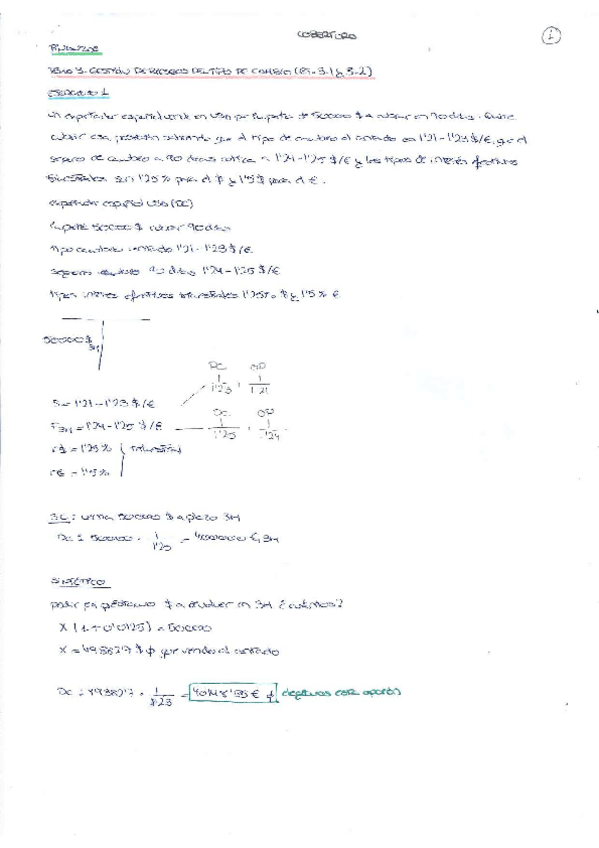 COBERTURA
1
FINANZAS
TEMA 3. GESTIÓN DE RIESGOS DEL TIPO DE CAMBIO (3.1 y 3.2)
EJERCICIO 1
Un exportador español vende en USA por importe de 50000 $ a cobrar en 90 días. Quiere
cubrir esa posición sabiendo que el tipo de cambio al contado es 1'21-1'23 $/€, que el
seguro de cambio a 90 días cotiza a 1'24-1'25 $/€ y los tipos de interés efectivos
trimestrales son 1'25% para el $ y 1'5 para el €.
exportador español USA (DC)
Importe 50000 $ cobrar 90 días
tipo cambio contado 1'21-1'23 $/€
seguro cambio 90 días 1'24-1'25 $/€
tipos interés efectivos trimestrales 1'25% $ y 1'5% €
50000 $
3M
DC OP
1/1'23 , 1/1'21
S = 1'21-1'23 $/€
DC OP
F3M = 1'24-1'25 $/€ 1/1'25 , 1/1'24
r$ = 1'25% trimestral
r€ = 1'5%
SC: 50000 $ a plazo 3M
DC : 50000 · 1/1'25 = 3M
SINTÉTICO
pedir préstamo $ a devolver en 3M ¿cuántos?
X (1 + 0'0125) = 50000
X = $ que vendo al contado
DC : · 1/1'23 =